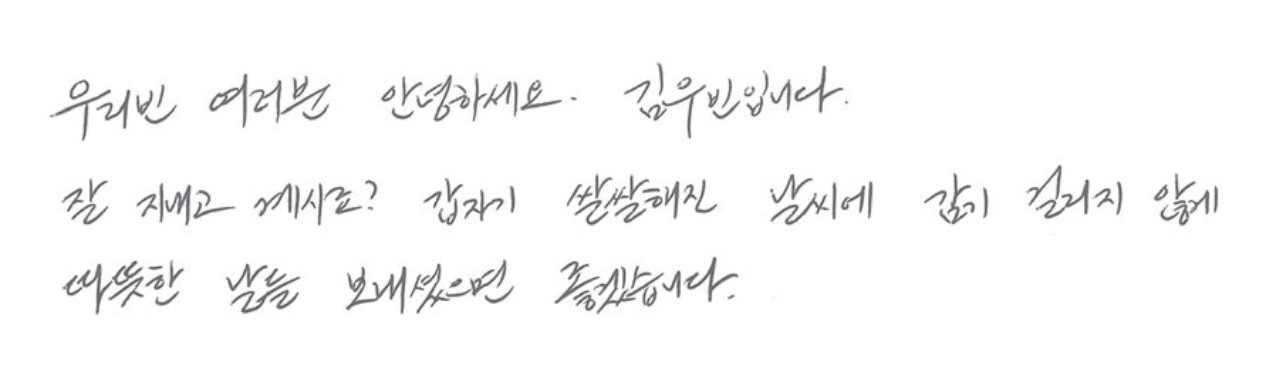 우리빈 여러분 안녕하세요. 김우빈입니다.
잘 지내고 계시죠? 갑자기 쌀쌀해진 날씨에 감기 걸리지 않게
따뜻한 날들 보내셨으면 좋겠습니다.